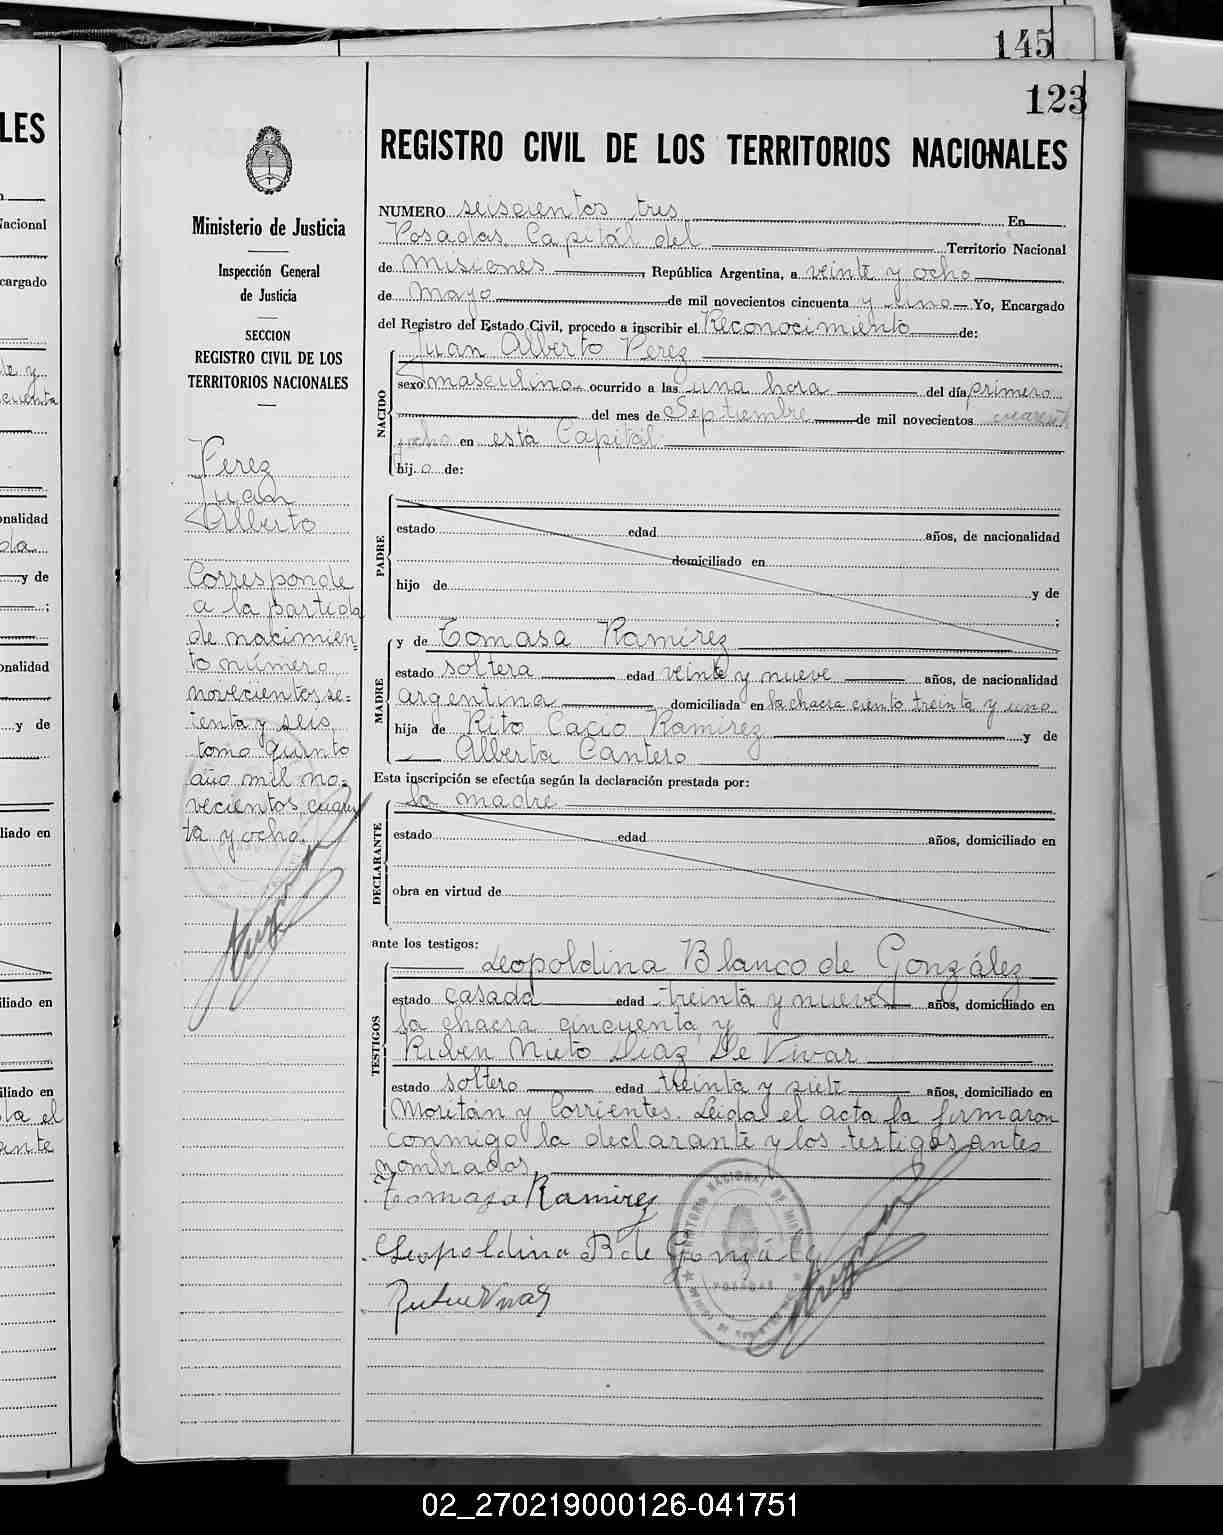 145
123
LES
REGISTRO CIVIL DE LOS TERRITORIOS NACIONALES
Ministerio de Justicia
Inspección General
de Justicia
SECCION
REGISTRO CIVIL DE LOS
TERRITORIOS NACIONALES
Perez
Juan
Alberto
Corresponde
a la partida
de nacimien=
to número
novecientos se-
tenta y seis
tomo quinto
año mil no=
vecientos cuaren
ta y ocho.
NUMERO seiscientos tres En
Posadas Capitál del Territorio Nacional
de Misiones, República Argentina, a veinte y ocho
de Mayo de mil novecientos cincuenta y uno Yo, Encargado
del Registro del Estado Civil, procedo a inscribir el Reconocimiento de:
Juan Alberto Perez
NACIDO
sexo masculino ocurrido a las una hora del día primero
del mes de Septiembre de mil novecientos cuarenta
y ocho en está Capitál
hij o de:
PADRE
estado edad años, de nacionalidad
domiciliado en
hijo de y de
;
MADRE
y de Tomasa Ramírez
estado soltera edad veinte y nueve años, de nacionalidad
argentina domiciliada en la chacra ciento treinta y uno
hija de Rito Cacio Ramírez y de
Alberta Cantero
Esta inscripción se efectúa según la declaración prestada por:
DECLARANTE
la madre
estado edad años, domiciliado en
obra en virtud de
ante los testigos:
TESTIGOS
Leopoldina Blanco de González
estado casada edad treinta y nueve años, domiciliado en
la chacra cincuenta y
Ruben Nieto Diaz De Vivar
estado soltero edad treinta y siete años, domiciliado en
Moritán y Corrientes. Leida el acta la firmaron
conmigo la declarante y los testigos antes
nombrados.
Tomasa Ramirez
Leopoldina B de Gonzále
POSADAS
02_270219000126-041751